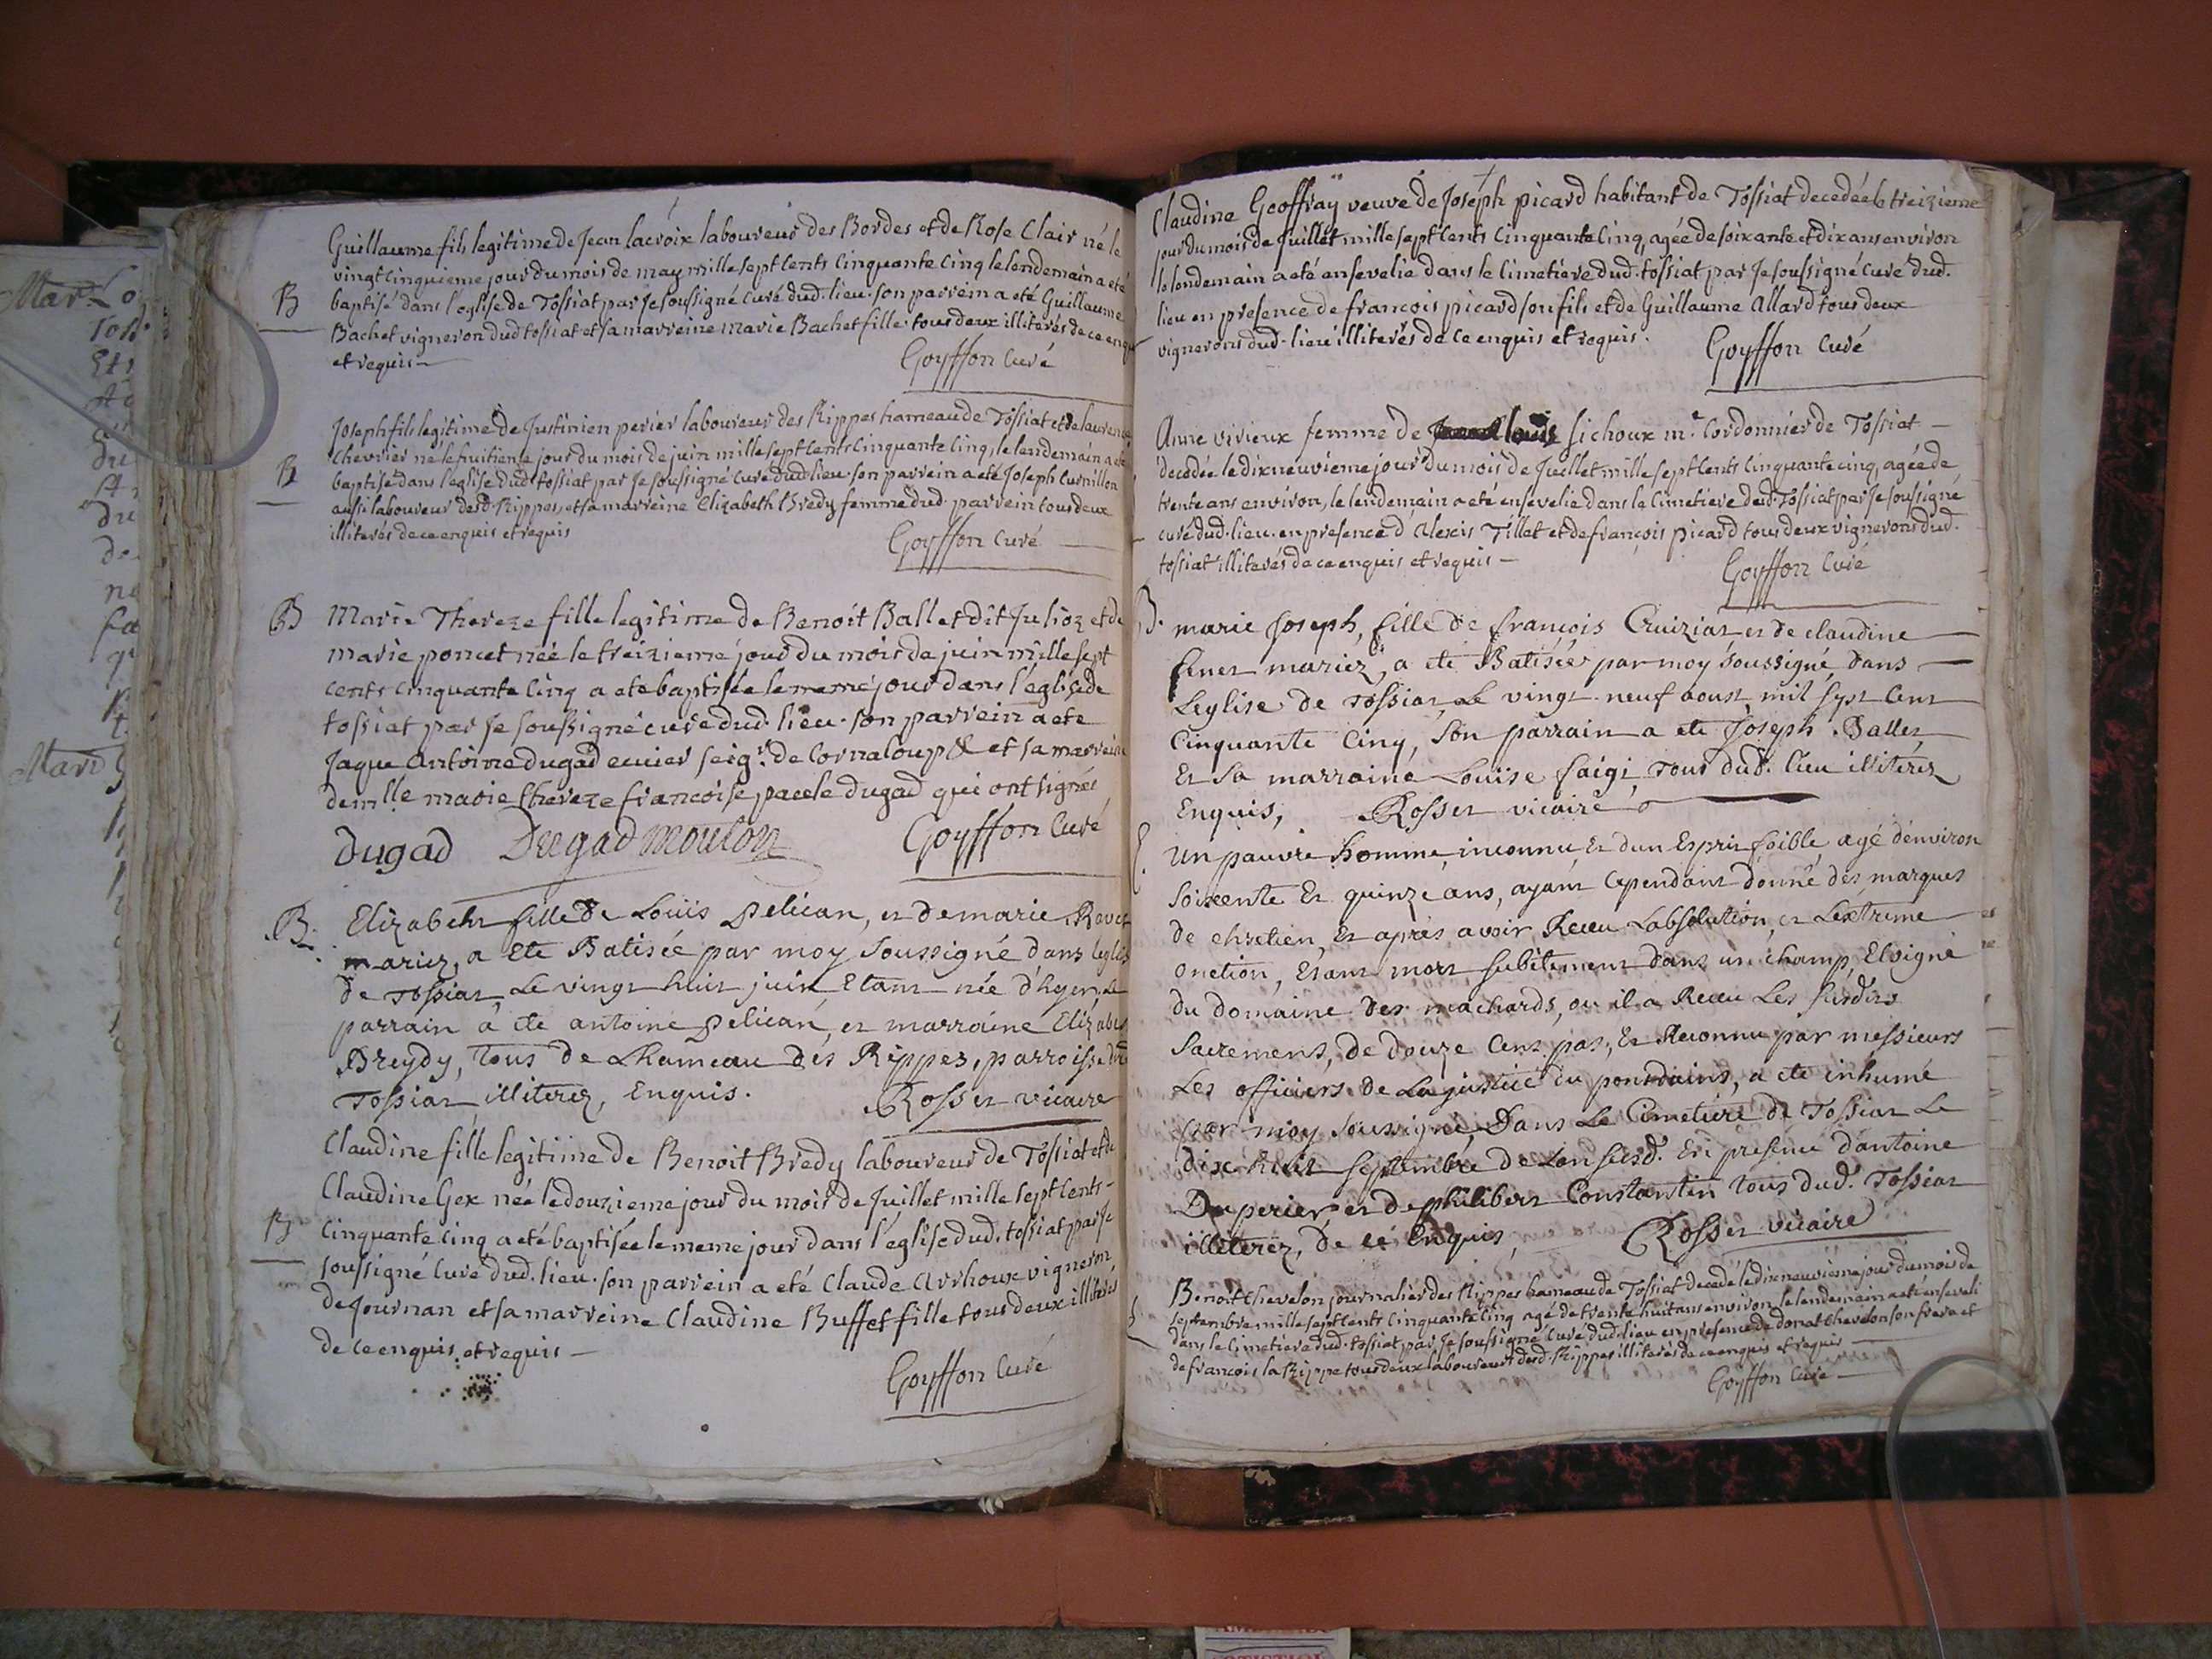 Mar. Lo
Toss
Guillaume fils legitime de Jean lacroix laboureur des Bordes et de Rose Clair né le
vingt cinquieme jour du mois de may mille sept cents cinquante cinq le lendemain a eté
B baptisé dans l'eglise de Tossiat par Je soussigné curé dud. lieu. son parrein a eté Guillaume
Bachet vigneron dud tossiat et sa marreine marie Bachet fille. tous deux illiterés de ce enquis
et requis
Goyffon Curé
Joseph fils legitime de Justinien perier laboureur des Rippes hameau de Tossiat et de laurence
chevrier né le huitieme jour du mois de juin mille sept cents cinquante cinq, le lendemain a eté
B baptisé dans l'eglise dud. tossiat par Je soussigné curé dud. lieu. son parrein a eté Joseph Curnillon
aussi laboureur desd. Rippes, et sa marreine Elizabeth Bredy femme dud. parrein tous deux
illiterés de ce enquis et requis
Goyffon Curé
B Marie Thereze fille legitime de Benoit Ballet dit Julioz et de
marie poncet née le treizieme jour du mois de juin mille sept
cents cinquante cinq a eté baptisée le meme jour dans l'eglise de
tossiat par Je soussigné curé dud. lieu. son parrein a eté
Jaque Antoine dugad ecuier seigr. de Cornaloup & et sa marreine
demlle marie thereze francoise pacele dugad qui ont signés
dugad Dugad moulon Goyffon Curé
B. Elizabeht fille de Loüis Pelican, et de marie Ravet
mariez, a ete Batisée par moy soussigné dans leglise
de Tossiat Le vingt huit juin, Etant née d'hyer, Le
parrain a ete antoine Pelican, et marroine Elizabet
Breydy, tous de Lhameau des Rippes, parroisse dud.
Tossiat illiterez, Enquis. Rosset vicaire
Claudine fille legitime de Benoit Bredy laboureur de Tossiat et de
Claudine Gex née le douzieme jour du mois de Juillet mille sept cents
B cinquante cinq a eté baptisée le meme jour dans l'eglise dud. tossiat par Je
soussigné Curé dud. lieu. son parrein a eté Claude Arrhoux vigneron
de Journan et sa marreine Claudine Buffet fille tous deux illiterés
de ce enquis et requis
Goyffon Curé
Claudine Geoffray veuve de Joseph picard habitant de Tossiat decedée le treizieme
jour du mois de Juillet mille sept cents cinquante cinq, agée de soixante et dix ans environ
le lendemain a eté ensevelie dans le cimetiere dud. tossiat par Je soussigné curé dud.
lieu en presence de francois picard son fils et de Guillaume Allard tous deux
vignerons dud. lieu illiterés de ce enquis et requis. Goyffon Curé
Anne vivieux femme de louis sichoux me. Cordonnier de Tossiat
decedée le dixneuvieme jour du mois de Juillet mille sept cents cinquante cinq, agée de
trente ans environ, le lendemain a eté ensevelie dans le cimetiere dud. Tossiat par Je soussigné
curé dud. lieu. en presence d'Alexis Tillet et de françois picard tous deux vignerons dud.
tossiat illiterés de ce enquis et requis
Goyffon Curé
B. marie Joseph, fille de francois Cruiziat et de claudine
feuet mariez, a ete Batisée par moy soussigné, dans
Leglise de Tossiat Le vingt neuf aoust mil sept cent
Cinquante Cinq, Son parrain a ete Joseph Ballet
Et Sa marraine Louise faigi, Tous dud. lieu illiterez
Enquis, Rosset vicaire
Un pauvre homme, inconnu, Et d'un Esprit foible, agé denviron
Soixente Et quinze ans, ayant cependant donné des marques
de chretien, Et après avoir Receu Labsolution, et Lextreme
onction, Etant mort subitement dans un champ Eloigné
du domaine des machards, ou il a Receu Les susdits
Sacremens, de douze Cens pas, Et Reconnu par messieurs
Les officiers de La justice du pontdains, a ete inhumé
par moy Soussigné, Dans Le Cimetiere de Tossiat Le
Dix huit Septembre de Lan susd. En presence d'antoine
Du perier et de philibert Constantin tous dud. Tossiat
illiterez, de ce Enquis, Rosset vicaire
Benoit Chevelon journalier des Rippes hameau de Tossiat decedé le dixneuvieme jour du mois de
septembre mille sept cents cinquante cinq agé de trente huit ans environ le lendemain a eté enseveli
dans le cimetiere dud. tossiat par Je soussigné Curé dud. lieu en presence de donat Chevelon son frere et
de francois la Rippe tous deux laboureurs desd. Rippes illiterés de ce enquis et requis
Goyffon Curé